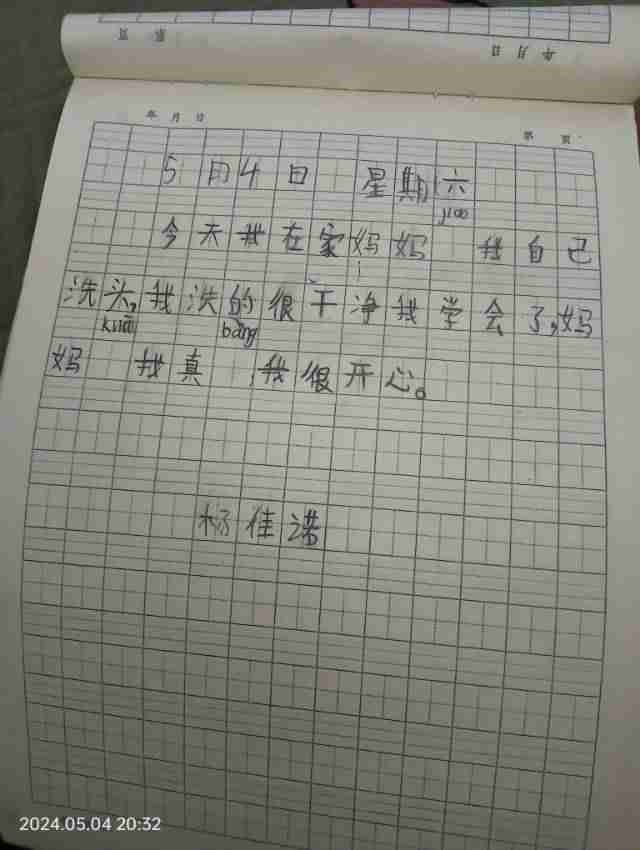 第 页
年 月 日
年 月 日
第 页
5 月 4 日 星期六
jiao
今天我在家妈妈 我自己
洗头,我洗的很干净我学会了,妈
kuā bāng
妈 我真 ,我很开心。
杨佳诺
2024.05.04 20:32